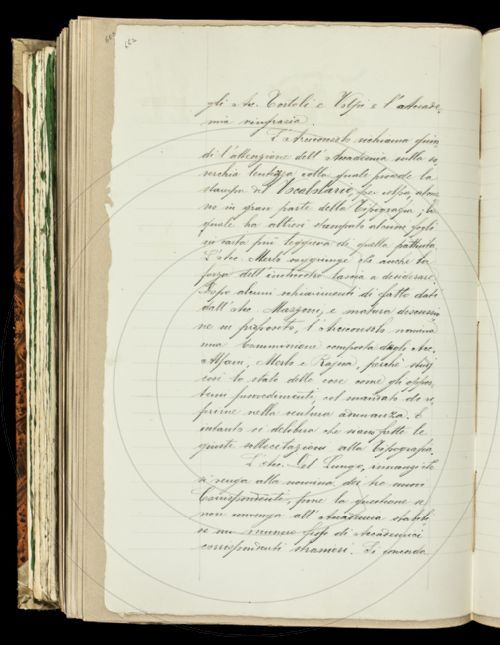 662
662
gli Acc. Tortoli e Volpi e l'Accade-
mia ringrazia.
L'Arciconsolo richiama quin
di l'attenzione dell'Accademia sulla so
verchia lentezza colla quale procede la
stampa del Vocabolario, per colpa, alme
no in gran parte della Tipografia; la
quale ha altresì stampato alcuni fogli
in carta più leggiera di quella pattuita.
L'Acc. Merlo soggiunge che anche la
forza dell'inchiostro lascia a desiderare.
Dopo alcuni schiarimenti di fatto dati
dall'Acc. Mazzoni, e matura discussio
ne in proposito, l'Arciconsolo nomina
una Commissione composta dagli Acc.
Alfani, Merlo e Rajna, perchè studj
così lo stato delle cose come gli oppor-
tuni provvedimenti, col mandato di ri
ferirne nella ventura adunanza. E
intanto si delibera che siano fatte le
giuste sollecitazioni alla Tipografia.
L'Acc. Del Lungo, innanzi che
si venga alla nomina dei tre nuovi
Corrispondenti, pone la questione se
non convenga all'Accademia stabili
re un numero fisso di Accademici
corrispondenti stranieri. Si